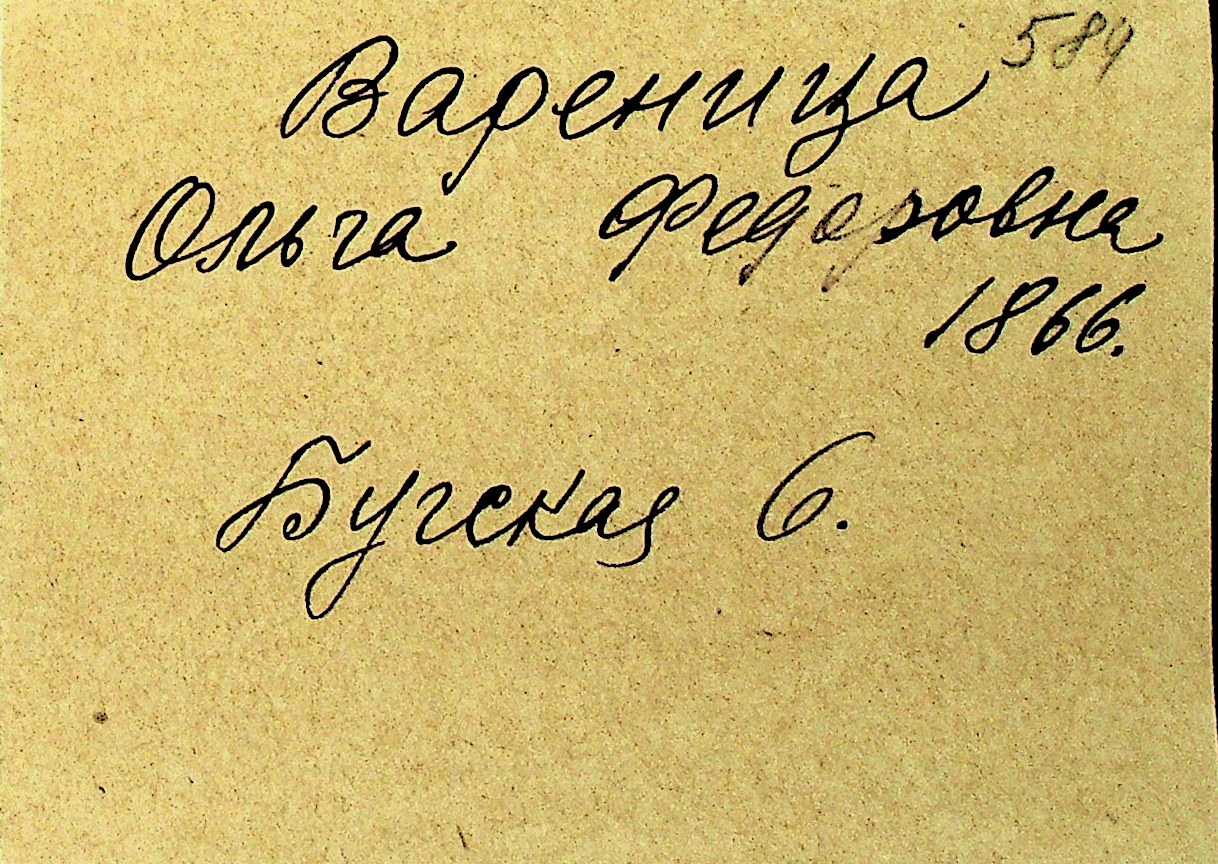 584
Вареница
Ольга Федоровна
1866.
Бугская 6.